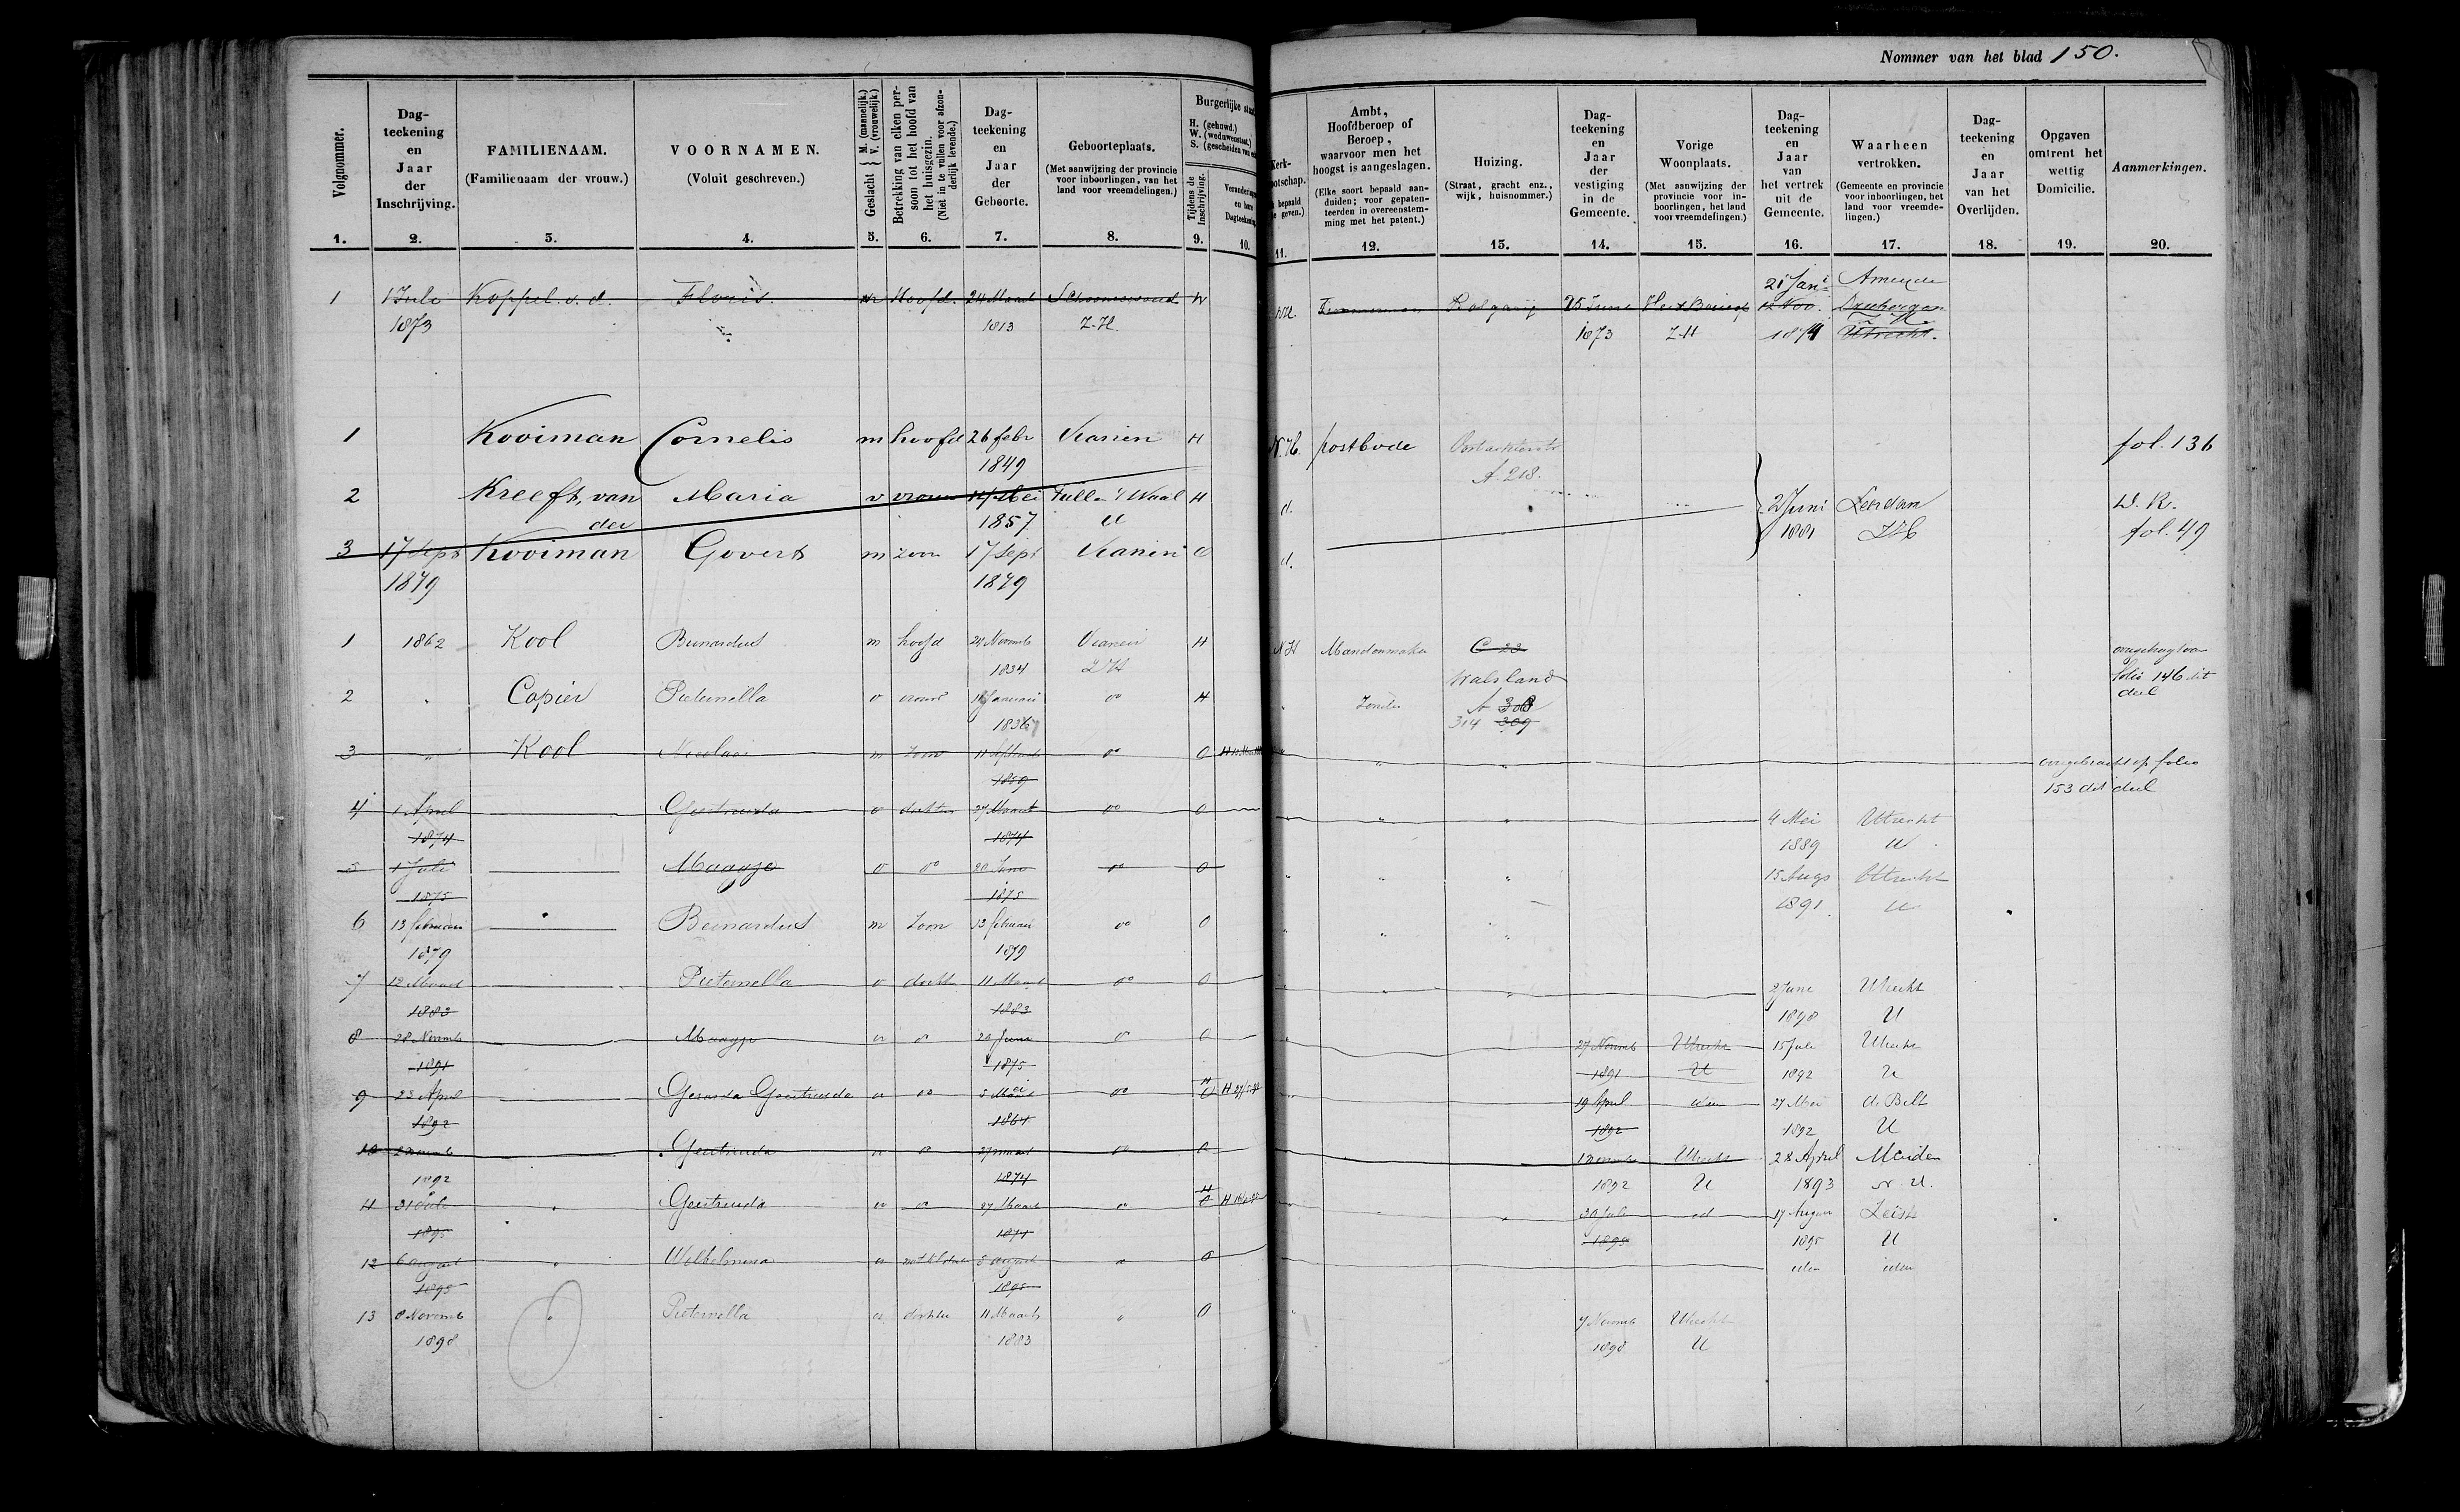 Nommer van het blad 150.
Volgnommer. 1.
Dag-
teekening
en
Jaar
der
Inschrijving. 2.
FAMILIENAAM.
(Familienaam der vrouw.) 3.
VOORNAMEN.
(Voluit geschreven.) 4.
Geslacht { M. (mannelijk.) V. (vrouwelijk) 5.
Betrekking van elken per-
soon tot het hoofd van
het huisgezin.
(Niet in te vullen voor afzon-
derlijk levende.) 6.
Dag-
teekening
en
Jaar
der
Geboorte. 7.
Geboorteplaats.
(Met aanwijzing der provincie
voor inboorlingen, van het
land voor vreemdelingen.) 8.
Burgerlijke staa
H. (gehuwd.)
W. (weduwenstaat.)
S. (gescheiden van
Tijdens de
Inschrijving. 9.
Verandering
en hare
Dagteekening 10.
Kerk-
ootschap.
bepaald
e geven.) 11.
Ambt,
Hoofdberoep of
Beroep,
waarvoor men het
hoogst is aangeslagen.
(Elke soort bepaald aan-
duiden; voor gepaten-
teerden in overeenstem-
ming met het patent.) 12.
Huizing.
(Straat, gracht enz.,
wijk, huisnommer.) 13.
Dag-
teekening
en
Jaar
der
vestiging
in de
Gemeente. 14.
Vorige
Woonplaats.
(Met aanwijzing der
provincie voor in-
boorlingen, het land
voor vreemdelingen.) 15.
Dag-
teekening
en
Jaar
van
het vertrek
uit de
Gemeente. 16.
Waarheen
vertrokken.
(Gemeente en provincie
voor inboorlingen, het
land voor vreemde-
lingen.) 17.
Dag-
teekening
en
Jaar
van het
Overlijden. 18.
Opgaven
omtrent het
wettig
Domicilie. 19.
Aanmerkingen. 20.
21 Jani Ameyde
1 1 Juli Koppel v. d. Floris. m Hoofd. 24 Maart W 25 Juni 12 Nov.
1873 1813 Z.H. 1873 Z-H 1874 Utrecht.
1 Kooiman Cornelis m hoofd 26 febr Vianen H N.H. postbode fol. 136
1849 A. 218.
2 Kreeft, van Maria v vrouw 14 Mei Tull en 't Waal H d. 2 Juni Leerdam D. R.
der 1857 U 1881 ZH fol. 49
3 17 Sept Kooiman Govert m zoon 17 Sept Vianen O d.
1879 1879
1 1862 Kool Bernardus m hoofd 24 Novemb Vianen H NH Mandenmaker C 23 overgebragt van
1834 ZH folio 146 dit
2 " Copier Pieternella v vrouw do H " Zonder A deel
1836 314 309
3 " Kool Nicolaas m zoon 11 Septemb do O " " " overgebracht op folio
1859 153 dit deel
4 1 April Geertruida v dochter 27 Maart do O " " " 4 Mei Utrecht
1874 1874 1889 U
5 1 Juli Maagje v do 20 Juni do O " " " 15 Augs Utrecht
1875 1875 1891 U
6 13 februari Bernardus m Zoon 13 februari do O " " "
1879 1879
7 12 Maart Pieternella v docht 11 Maart do O " " 2 Juni Utrecht
1883 1883 1898 U
8 28 Novemb Maagje v do 20 Juni do O " 27 Novemb Utrecht 15 Juli Utrecht
1891 1875 1891 U 1892 U
9 23 April Gerarda Geertruida v do 5 Mei do H 19 April idem 27 Mei de Bilt
1892 1864 1892 1892 U
10 2 novemb Geertruida v do 27 maart do O 1 Novemb Utrecht 28 April Muiden
1892 1874 1892 U 1893 N. H.
11 31 Juli " Geertruida v do 27 Maart do H " 30 Juli id 17 Augus Zeist
1895 1874 1895 1895 U
12 6 august " Wilhelmina v 5 august O idem idem
1895 1895
13 8 Novemb " Pieternella v. dochter 11 Maart " O " 7 Novemb Utrecht
1898 1883 1898 U